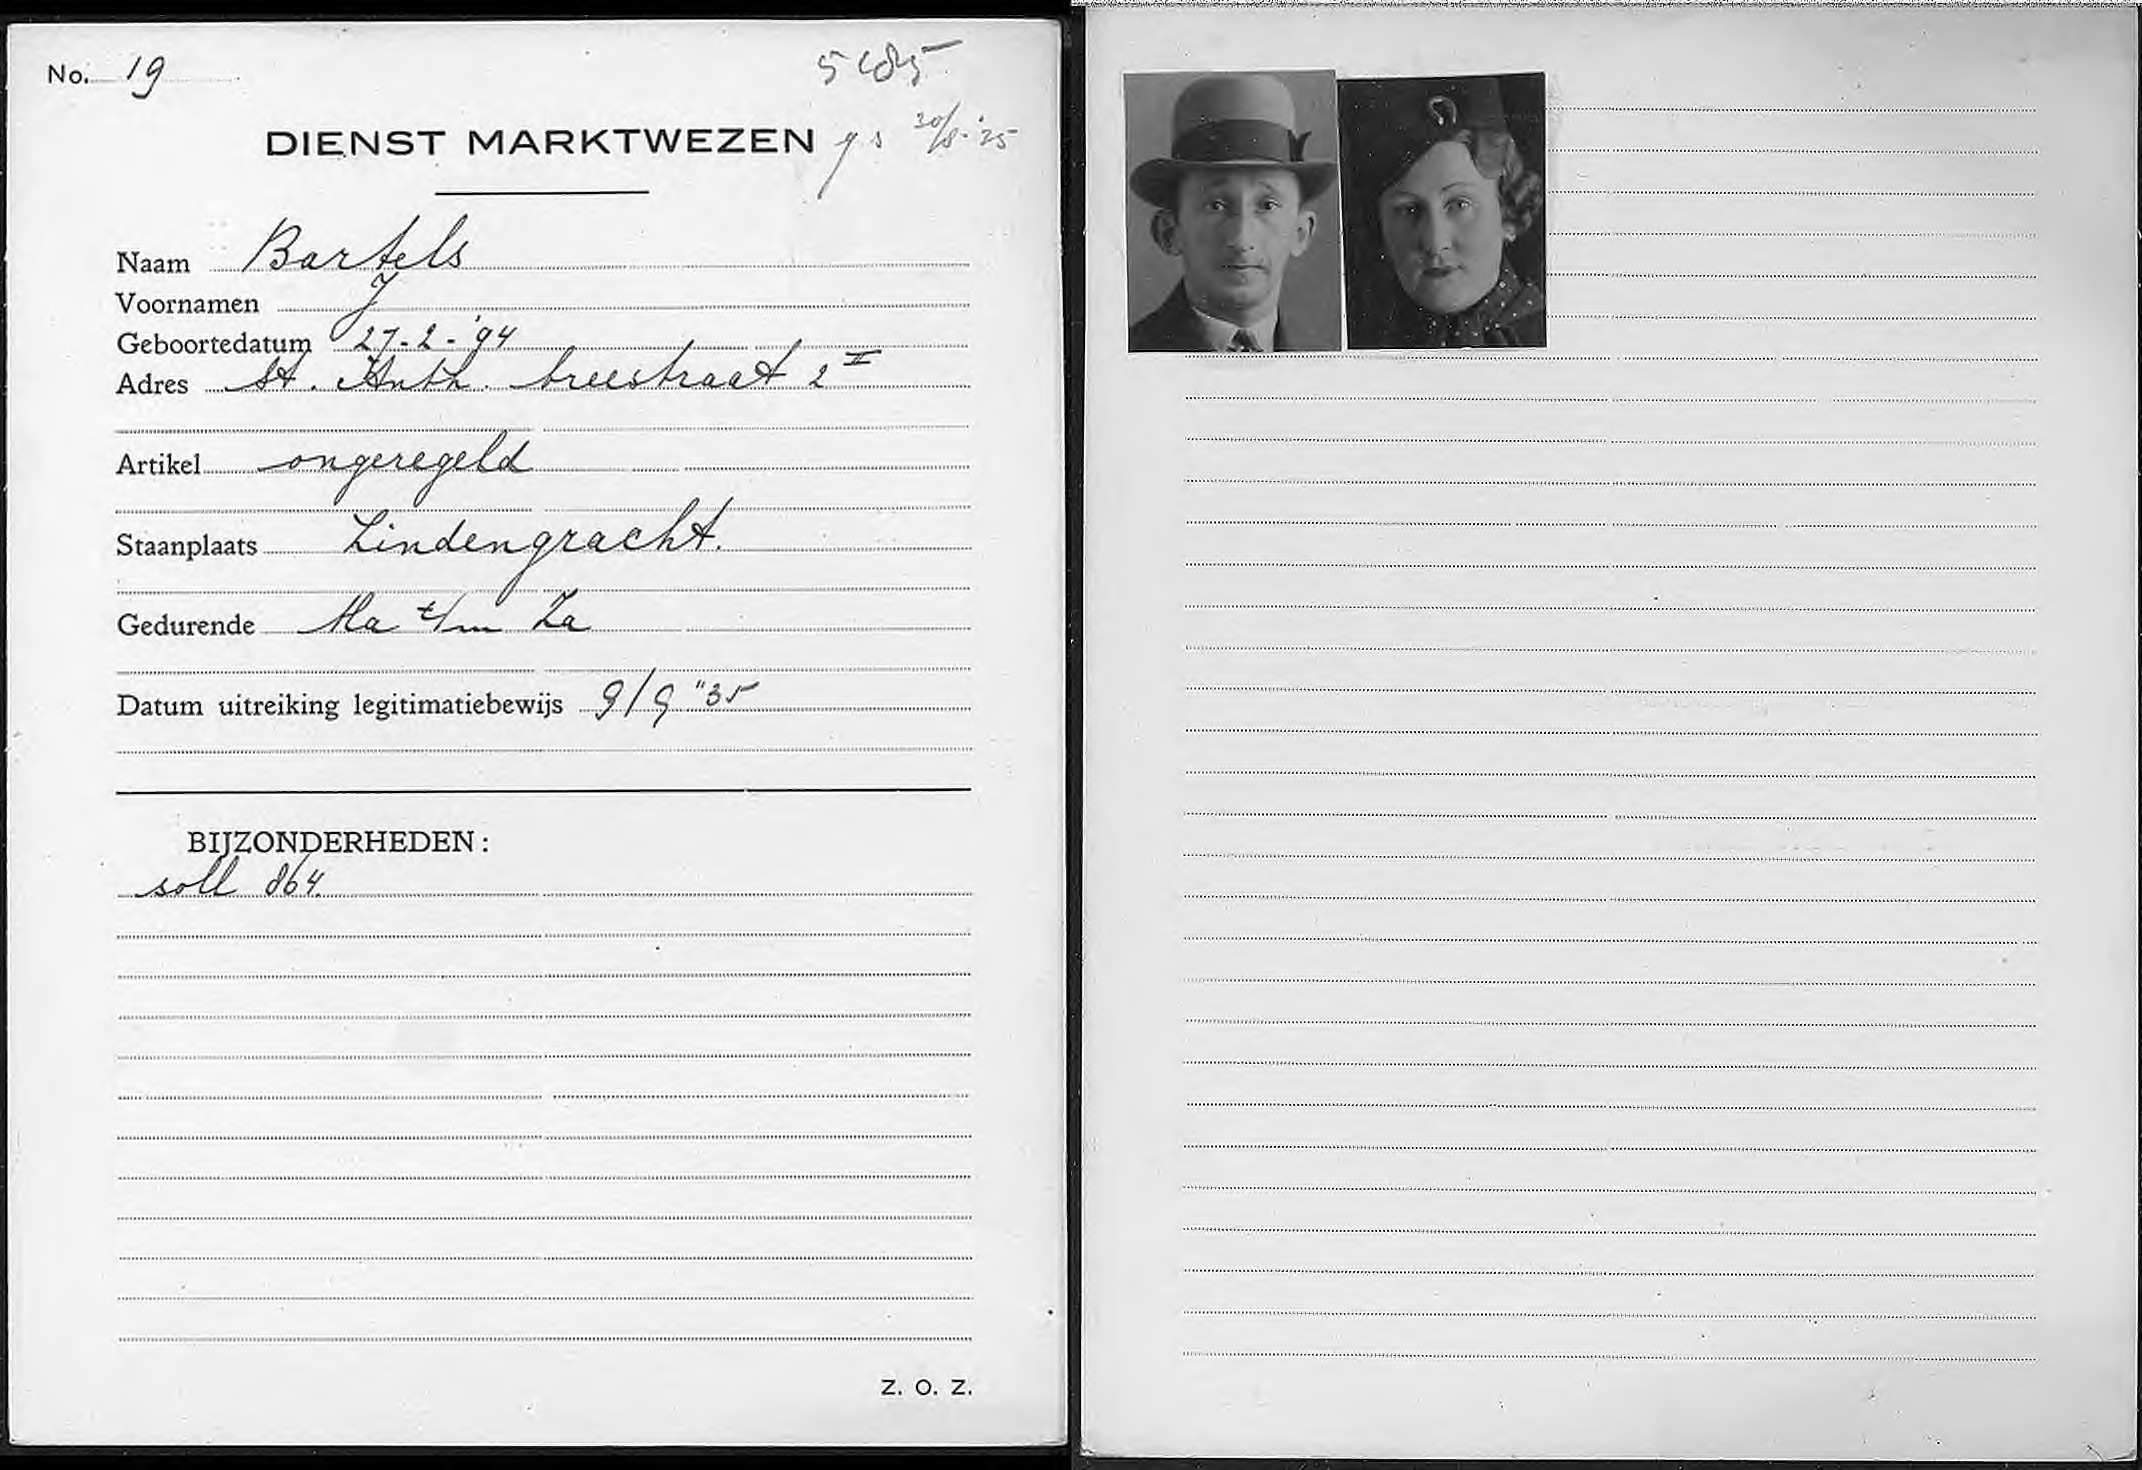 No. 19
5485
DIENST MARKTWEZEN
30/8-'25
Naam Bartels
Voornamen J
Geboortedatum 27-2-'94
Adres St. Anth. breestraat 2 II
Artikel ongeregeld
Staanplaats Lindengracht.
Gedurende Ma t/m Za
Datum uitreiking legitimatiebewijs 9/9 "35
BIJZONDERHEDEN:
soll 864.
Z. O. Z.